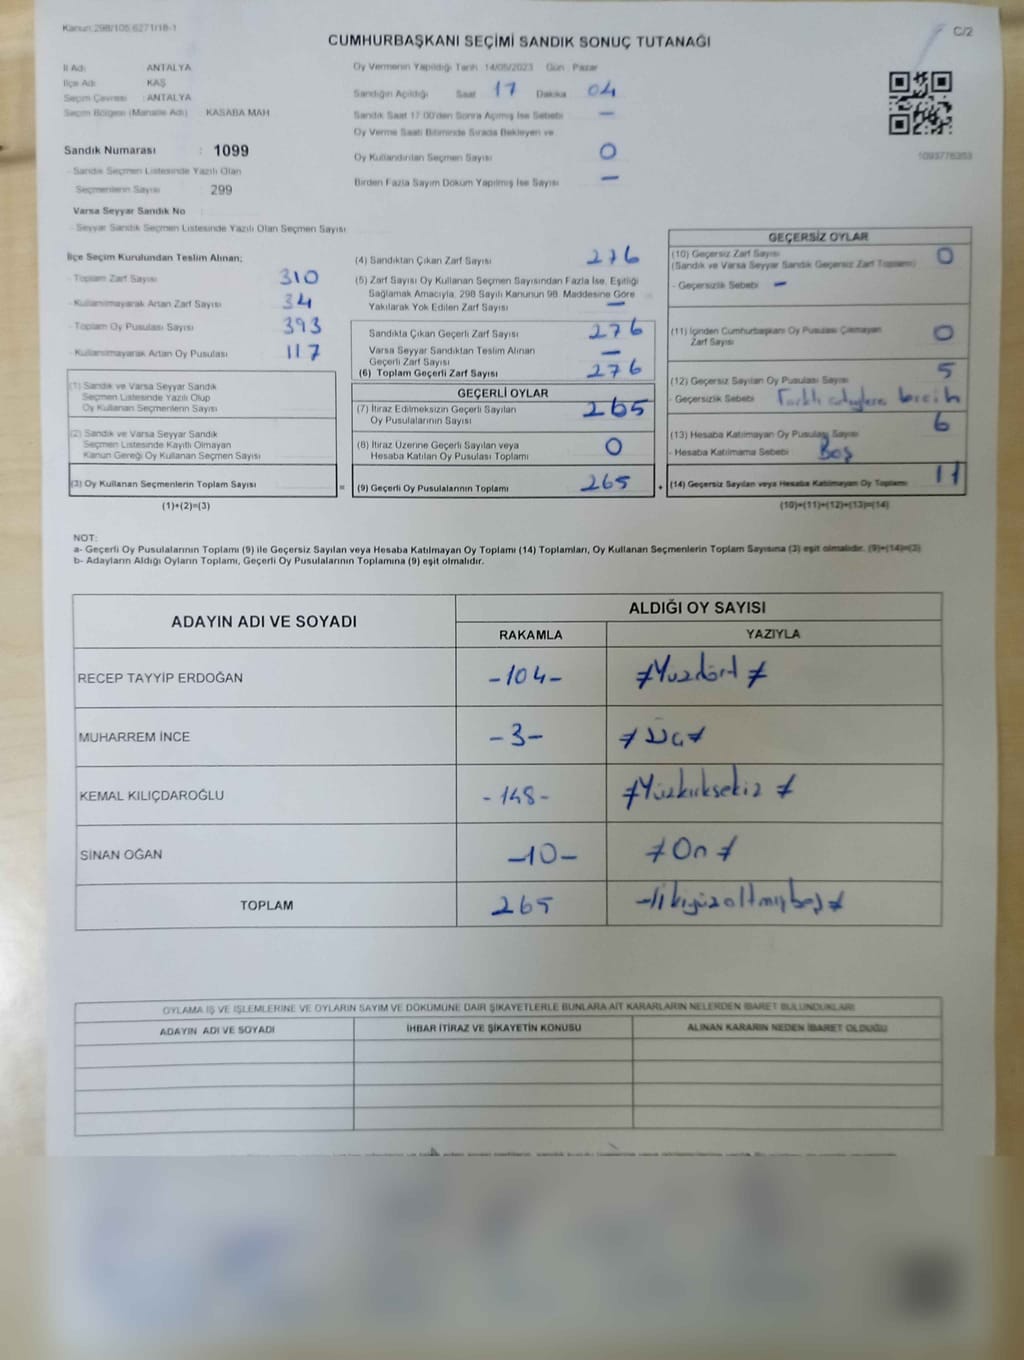 Kanun:298/105,6271/18-1
C/2
CUMHURBAŞKANI SEÇİMİ SANDIK SONUÇ TUTANAĞI
İl Adı : ANTALYA
İlçe Adı : KAŞ
Seçim Çevresi : ANTALYA
Seçim Bölgesi (Mahalle Adı) : KASABA MAH
Sandık Numarası : 1099
- Sandık Seçmen Listesinde Yazılı Olan
Seçmenlerin Sayısı : 299
Varsa Seyyar Sandık No
- Seyyar Sandık Seçmen Listesinde Yazılı Olan Seçmen Sayısı
Oy Vermenin Yapıldığı Tarih :14/05/2023 Gün : Pazar
Sandığın Açıldığı Saat 17 Dakika 04
Sandık Saat 17.00'den Sonra Açılmış İse Sebebi —
Oy Verme Saati Bitiminde Sırada Bekleyen ve
Oy Kullandırılan Seçmen Sayısı 0
Birden Fazla Sayım Döküm Yapılmış İse Sayısı —
1093776353
İlçe Seçim Kurulundan Teslim Alınan;
- Toplam Zarf Sayısı 310
- Kullanılmayarak Artan Zarf Sayısı 34
- Toplam Oy Pusulası Sayısı 393
- Kullanılmayarak Artan Oy Pusulası 117
(1) Sandık ve Varsa Seyyar Sandık
Seçmen Listesinde Yazılı Olup
Oy Kullanan Seçmenlerin Sayısı
(2) Sandık ve Varsa Seyyar Sandık
Seçmen Listesinde Kayıtlı Olmayan
Kanun Gereği Oy Kullanan Seçmen Sayısı
(3) Oy Kullanan Seçmenlerin Toplam Sayısı =
(1)+(2)=(3)
(4) Sandıktan Çıkan Zarf Sayısı 276
(5) Zarf Sayısı Oy Kullanan Seçmen Sayısından Fazla İse, Eşitliği
Sağlamak Amacıyla, 298 Sayılı Kanunun 98. Maddesine Göre
Yakılarak Yok Edilen Zarf Sayısı —
Sandıkta Çıkan Geçerli Zarf Sayısı 276
Varsa Seyyar Sandıktan Teslim Alınan
Geçerli Zarf Sayısı —
(6) Toplam Geçerli Zarf Sayısı 276
GEÇERLİ OYLAR
(7) İtiraz Edilmeksizin Geçerli Sayılan
Oy Pusulalarının Sayısı 265
(8) İtiraz Üzerine Geçerli Sayılan veya
Hesaba Katılan Oy Pusulası Toplamı 0
(9) Geçerli Oy Pusulalarının Toplamı 265 +
GEÇERSİZ OYLAR
(10) Geçersiz Zarf Sayısı
(Sandık ve Varsa Seyyar Sandık Geçersiz Zarf Toplamı) 0
- Geçersizlik Sebebi —
(11) İçinden Cumhurbaşkanı Oy Pusulası Çıkmayan
Zarf Sayısı 0
(12) Geçersiz Sayılan Oy Pusulası Sayısı 5
- Geçersizlik Sebebi Farklı adaylara tercih
(13) Hesaba Katılmayan Oy Pusulası Sayısı 6
- Hesaba Katılmama Sebebi Boş
(14) Geçersiz Sayılan veya Hesaba Katılmayan Oy Toplamı 11
(10)+(11)+(12)+(13)=(14)
NOT:
a- Geçerli Oy Pusulalarının Toplamı (9) ile Geçersiz Sayılan veya Hesaba Katılmayan Oy Toplamı (14) Toplamları, Oy Kullanan Seçmenlerin Toplam Sayısına (3) eşit olmalıdır. (9)+(14)=(3)
b- Adayların Aldığı Oyların Toplamı, Geçerli Oy Pusulalarının Toplamına (9) eşit olmalıdır.
ADAYIN ADI VE SOYADI
ALDIĞI OY SAYISI
RAKAMLA YAZIYLA
RECEP TAYYİP ERDOĞAN -104- Yüzdört
MUHARREM İNCE -3- Üç
KEMAL KILIÇDAROĞLU -148- Yüzkırksekiz
SİNAN OĞAN -10- On
TOPLAM 265 İkiyüzaltmışbeş
OYLAMA İŞ VE İŞLEMLERİNE VE OYLARIN SAYIM VE DÖKÜMÜNE DAİR ŞİKAYETLERLE BUNLARA AİT KARARLARIN NELERDEN İBARET BULUNDUKLARI
ADAYIN ADI VE SOYADI İHBAR İTİRAZ VE ŞİKAYETİN KONUSU ALINAN KARARIN NEDEN İBARET OLDUĞU